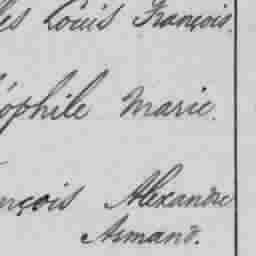 les Louis François.
éophile Marie.
ançois Alexandre
Armand.